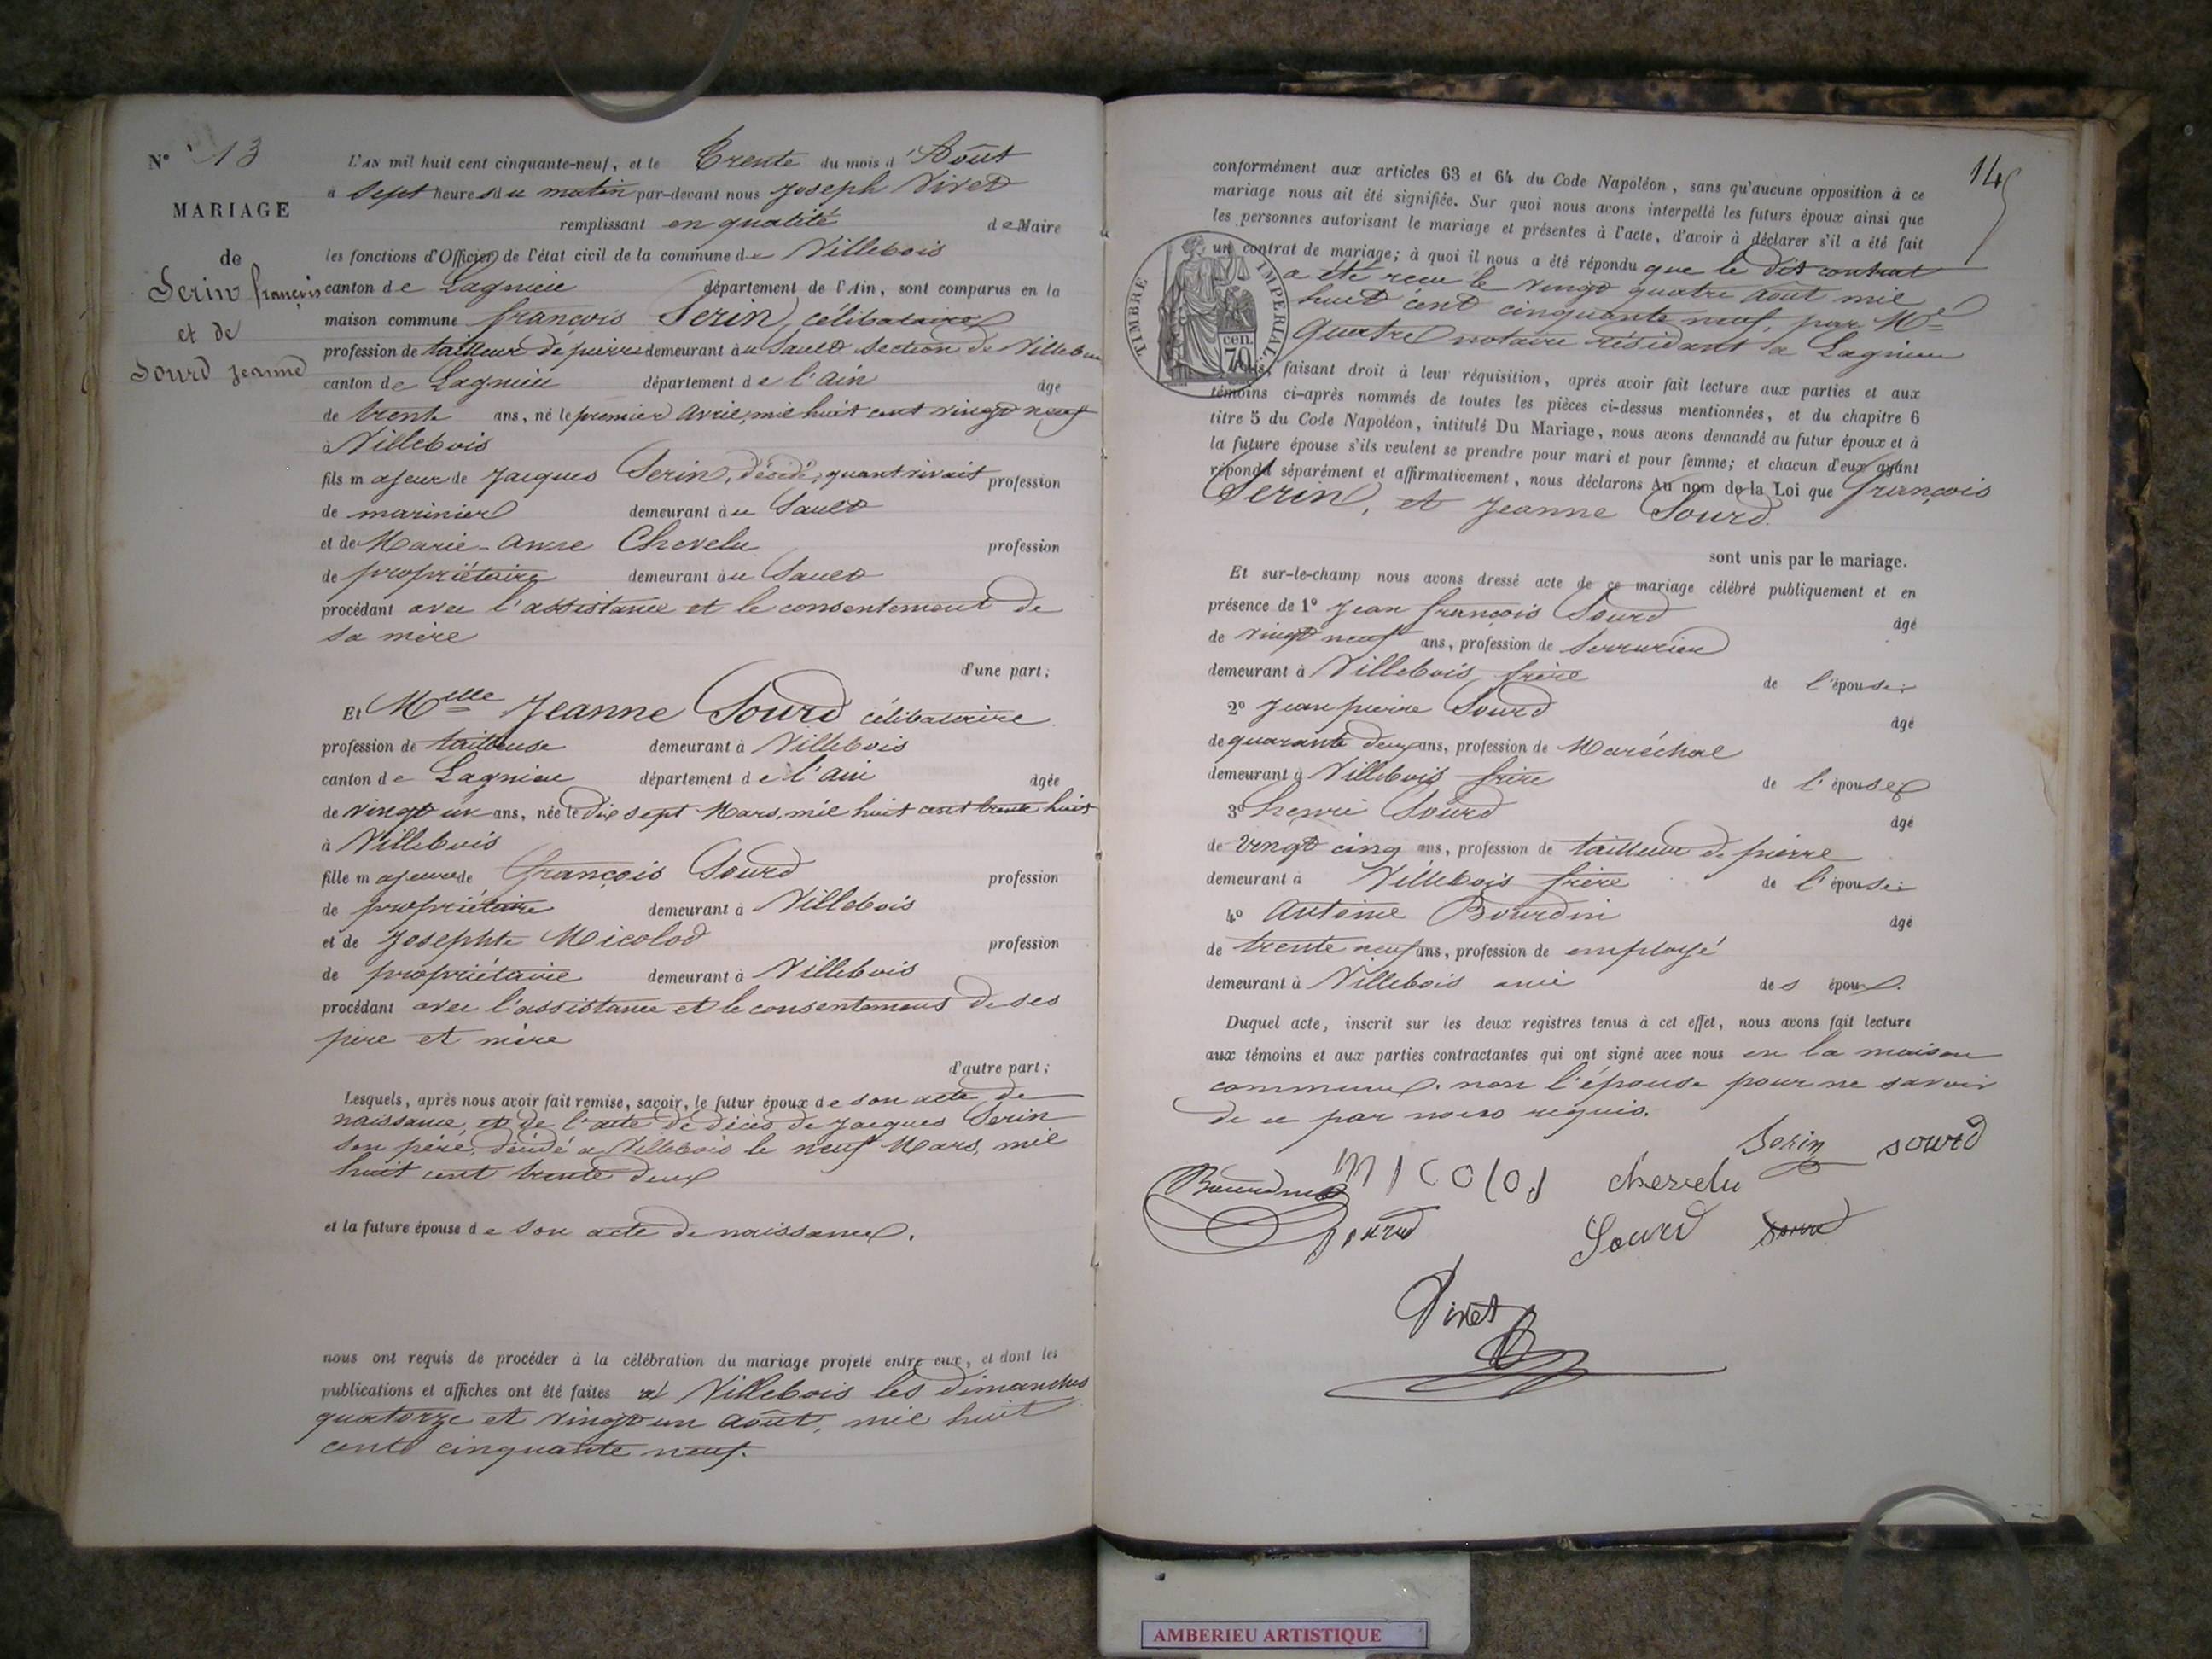 N° 13
MARIAGE
de
Serin françois
et de
Sourd jeanne
L'AN mil huit cent cinquante-neuf, et le Trente du mois d'Août
à Sept heures du matin par-devant nous Joseph Vivet
remplissant en qualité de Maire
les fonctions d'Officier de l'état civil de la commune de Villebois
canton de Lagnieu département de l'Ain, sont comparus en la
maison commune françois Serin, célibataire
profession de tailleur de pierre demeurant au Sault section de Villebois
canton de Lagnieu département de l'ain âgé
de trente ans, né le premier avril, mil huit cent vingt neuf
à Villebois
fils majeur de Jacques Serin, décédé, quant vivait profession
de marinier demeurant au Sault
et de Marie-Anne Chevelu profession
de propriétaire demeurant au Sault
procédant avec l'assistance et le consentement de
sa mère
d'une part;
Et Melle Jeanne Sourd célibataire
profession de tailleuse demeurant à Villebois
canton de Lagnieu département de l'ain âgée
de vingt un ans, née le Dix sept Mars, mil huit cent trente huit
à Villebois
fille majeure de François Sourd profession
de propriétaire demeurant à Villebois
et de Josephte Micolod profession
de propriétaire demeurant à Villebois
procédant avec l'assistance et le consentement de ses
père et mère
d'autre part;
Lesquels, après nous avoir fait remise, savoir, le futur époux de son acte de
naissance, et de l'acte de décès de Jacques Serin
son père, décédé à Villebois le neuf Mars, mil
huit cent trente deux
et la future épouse de son acte de naissance.
nous ont requis de procéder à la célébration du mariage projeté entre eux, et dont les
publications et affiches ont été faites à Villebois les dimanches
quatorze et vingt un août, mil huit
cent cinquante neuf.
145
conformément aux articles 63 et 64 du Code Napoléon, sans qu'aucune opposition à ce
mariage nous ait été signifiée. Sur quoi nous avons interpellé les futurs époux ainsi que
les personnes autorisant le mariage et présentes à l'acte, d'avoir à déclarer s'il a été fait
un contrat de mariage; à quoi il nous a été répondu que le dit contrat
a été reçu le vingt quatre août mil
huit cent cinquante neuf, par Me
Quatre notaire résidant à Lagnieu
TIMBRE IMPERIAL
70 cen.
Nous, faisant droit à leur réquisition, après avoir fait lecture aux parties et aux
témoins ci-après nommés de toutes les pièces ci-dessus mentionnées, et du chapitre 6
titre 5 du Code Napoléon, intitulé Du Mariage, nous avons demandé au futur époux et à
la future épouse s'ils veulent se prendre pour mari et pour femme; et chacun d'eux ayant
répondu séparément et affirmativement, nous déclarons Au nom de la Loi que françois
Serin, et Jeanne Sourd.
sont unis par le mariage.
Et sur-le-champ nous avons dressé acte de ce mariage célébré publiquement et en
présence de 1° Jean françois Sourd âgé
de vingt neuf ans, profession de Serrurier
demeurant à Villebois frère de l'épouse
2° Jean pierre Sourd âgé
de quarante deux ans, profession de Maréchal
demeurant à Villebois frère de l'épouse
3° henri Sourd âgé
de vingt cinq ans, profession de tailleur de pierre
demeurant à Villebois frère de l'épouse
4° Antoine Bourdin âgé
de trente neuf ans, profession de employé
demeurant à Villebois ami des époux.
Duquel acte, inscrit sur les deux registres tenus à cet effet, nous avons fait lecture
aux témoins et aux parties contractantes qui ont signé avec nous en la maison
commune. non l'épouse pour ne savoir
de ce par nous requis.
Serin sourd
Bourdin micolod chevelu
Sourd Sourd Sourd
Vivet
AMBERIEU ARTISTIQUE